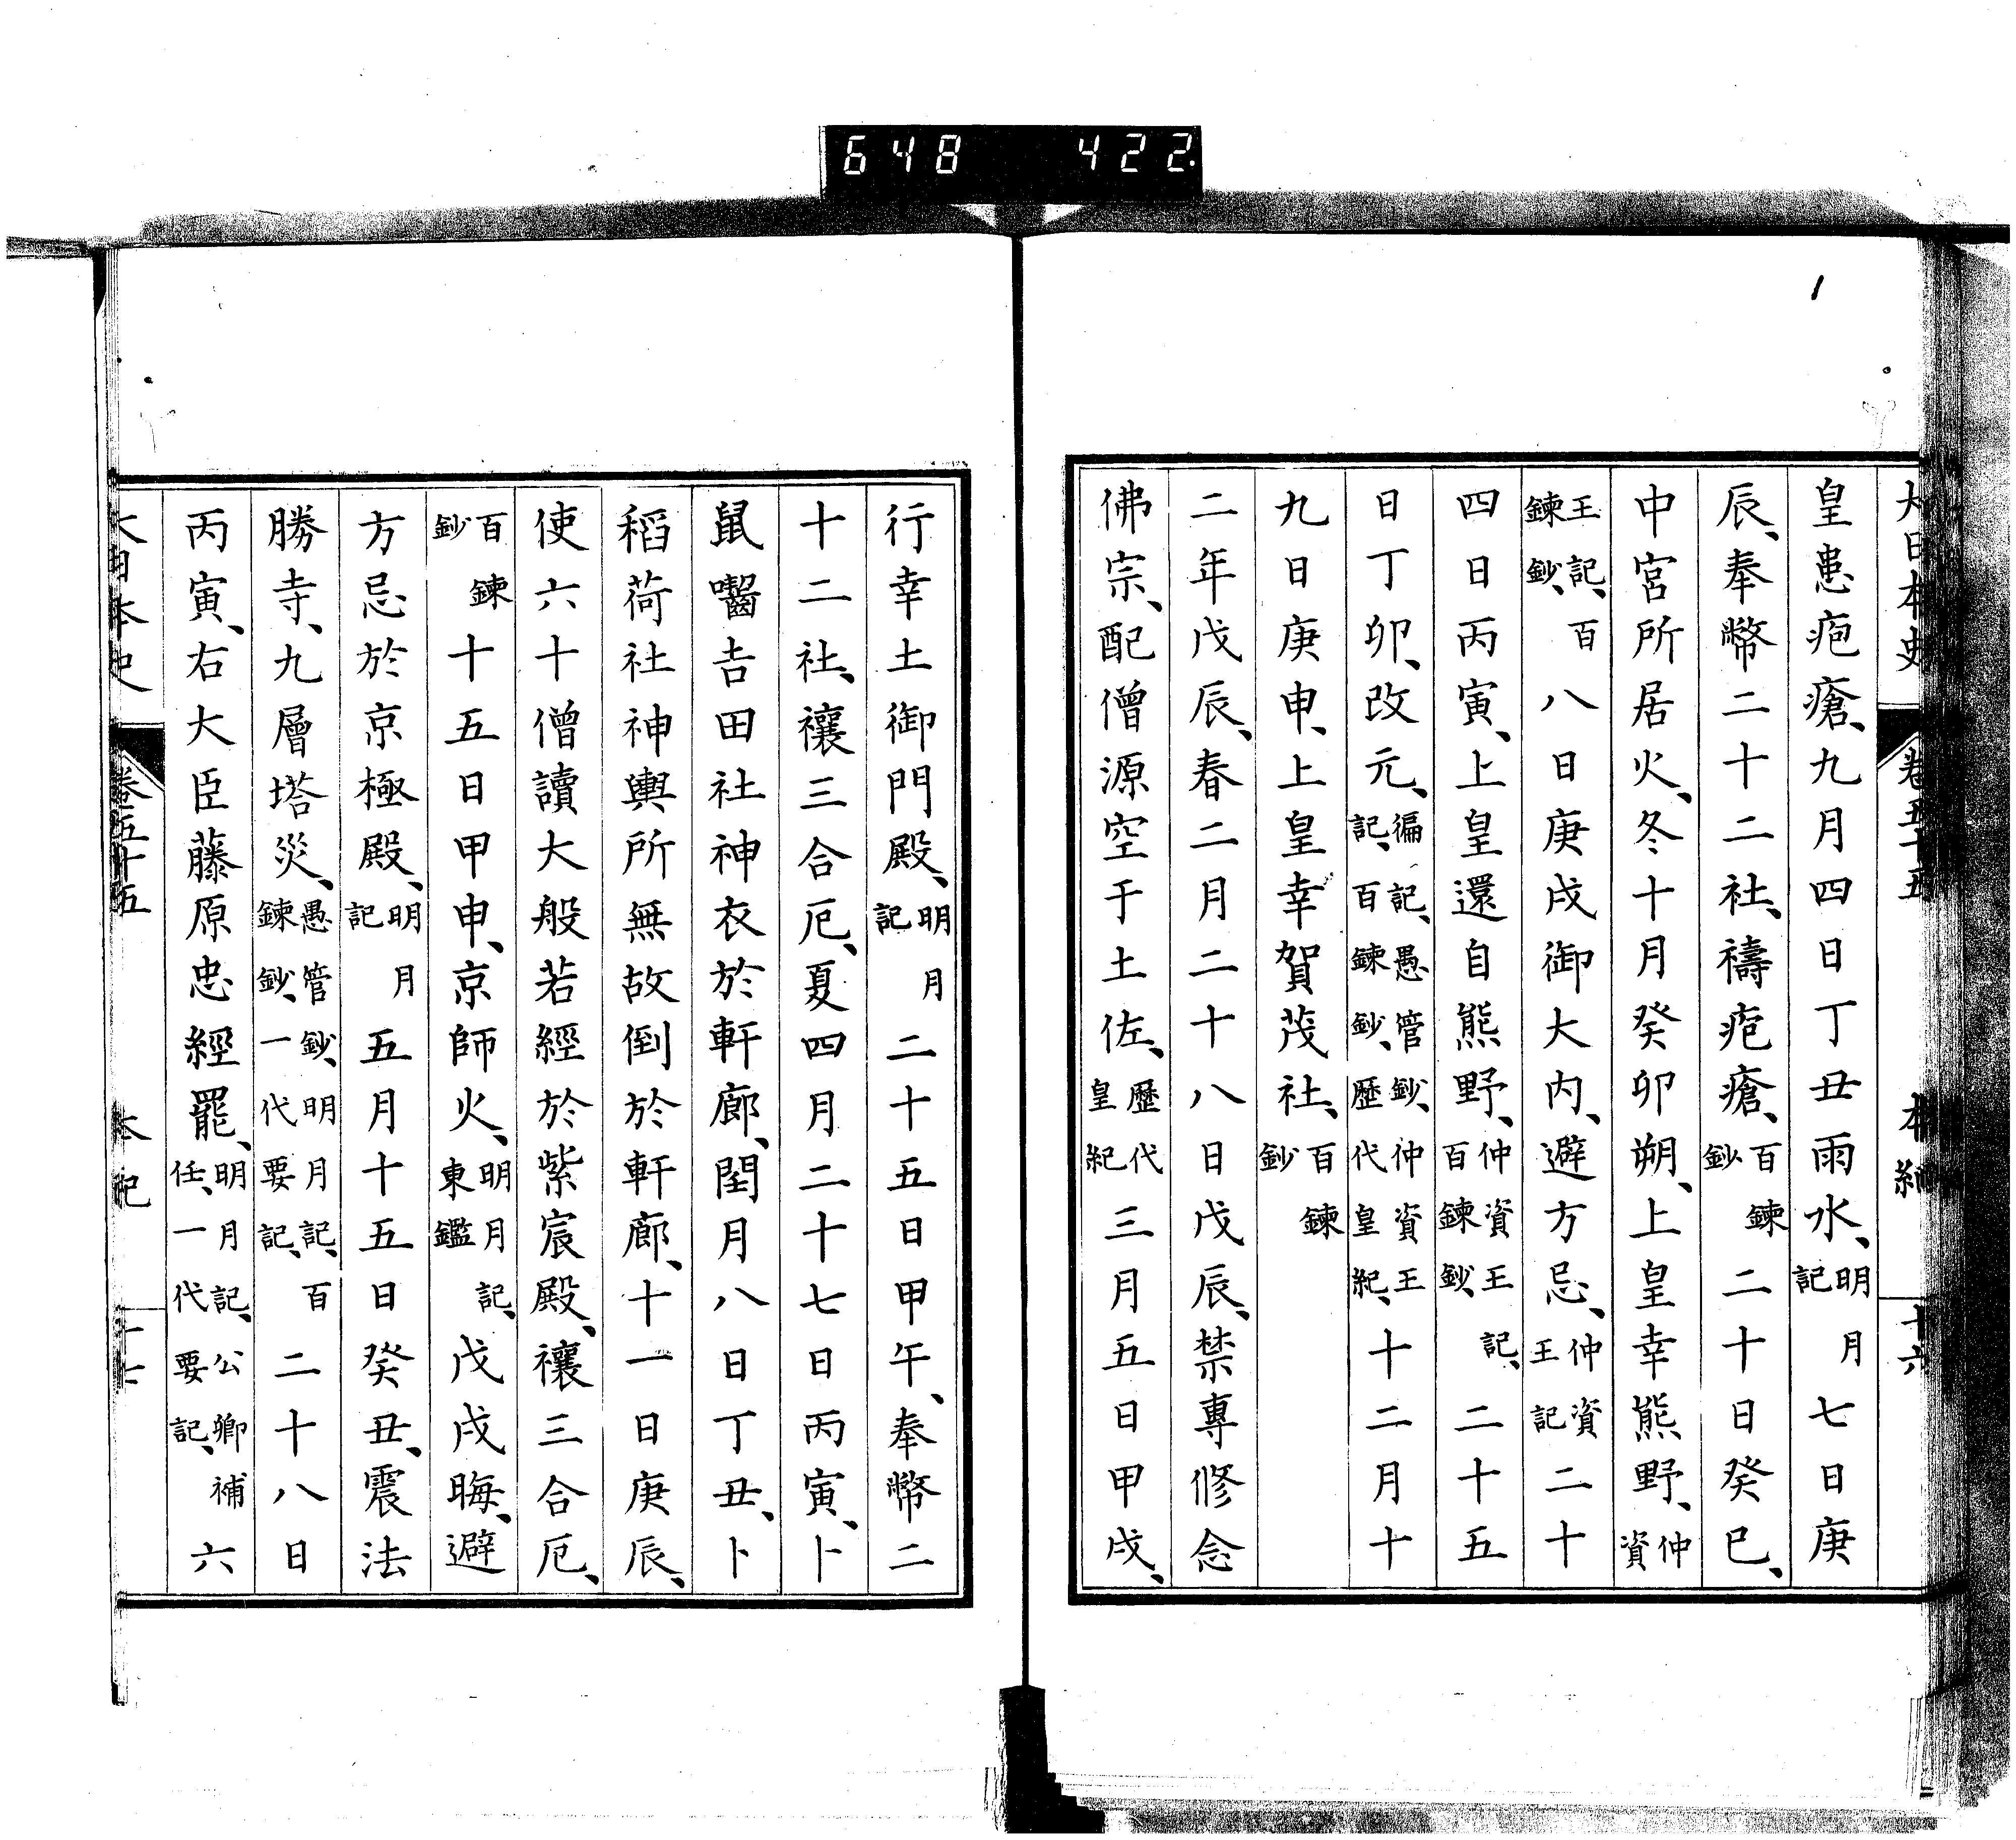 648 422
大日本史 卷五十五 本紀 十六
皇患疱瘡、九月四日丁丑雨水、明月記七日庚
辰、奉幣二十二社、禱疱瘡、百鍊鈔二十日癸巳、
中宮所居火、冬十月癸卯朔、上皇幸熊野、仲資
王記、百鍊鈔、八日庚戌御大内、避方忌、仲資王記二十
四日丙寅、上皇還自熊野、仲資王記、百鍊鈔、二十五
日丁卯、改元、徧記、愚管鈔、仲資王記、百鍊鈔、歷代皇紀、十二月十
九日庚申、上皇幸賀茂社、百鍊鈔
二年戊辰、春二月二十八日戊辰、禁專修念
佛宗、配僧源空于土佐、歷代皇紀三月五日甲戌、
行幸土御門殿、明月記二十五日甲午、奉幣二
十二社、禳三合厄、夏四月二十七日丙寅、卜
鼠嚙吉田社神衣於軒廊、閏月八日丁丑、卜
稻荷社神輿所無故倒於軒廊、十一日庚辰、
使六十僧讀大般若經於紫宸殿、禳三合厄、
百鍊鈔十五日甲申、京師火、明月記、東鑑戊戌晦、避
方忌於京極殿、明月記五月十五日癸丑、震法
勝寺、九層塔災、愚管鈔、明月記、百鍊鈔、一代要記、二十八日
丙寅、右大臣藤原忠經罷、明月記、公卿補任、一代要記、六
大日本史 卷五十五 本紀 十七